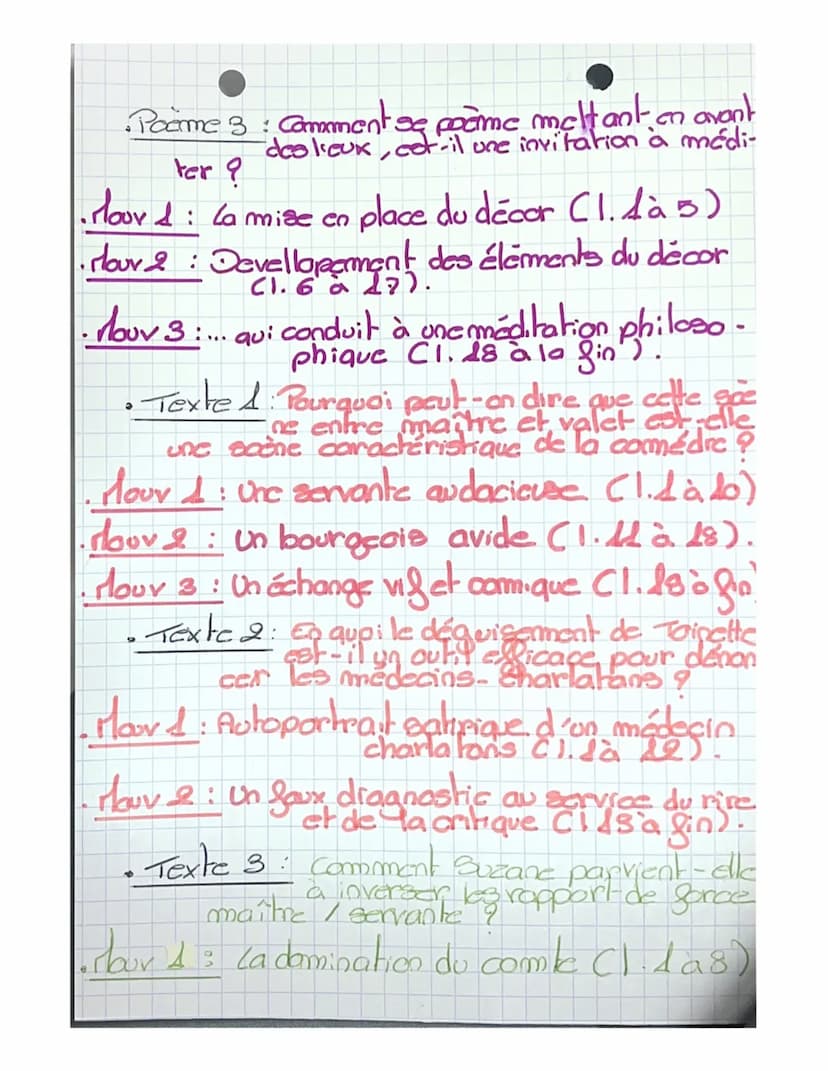 . Poème 3 : Comment se poème mettant en avant
des lieux, est-il une invitation à médi-
ter ?
. Mouv 1 : La mise en place du décor (l. 1 à 5)
. Mouv 2 : Devellopement des éléments du décor
(l. 6 à 17).
. Mouv 3 : ... qui conduit à une méditation philoso-
phique (l. 18 à la fin).
. Texte 1 : Pourquoi peut-on dire que cette scè
ne entre maître et valet est-elle
une scène caractéristique de la comédie ?
. Mouv 1 : Une servante audacieuse (l. 1 à 10)
. Mouv 2 : Un bourgeois avide (l. 11 à 18).
. Mouv 3 : Un échange vif et comique (l. 19 à fin)
. Texte 2 : En quoi le déguisement de Toinette
est-il un outil efficace pour dénon
cer les médecins-charlatans ?
. Mouv 1 : Autoportrait satirique d'un médecin
charlatans (l. 1 à 12).
. Mouv 2 : Un faux diagnostic au service du rire
et de la critique (l 13 à fin).
. Texte 3 : Comment Suzane parvient-elle
à inverser les rapport de force
maître / servante ?
. Mouv 1 : La domination du comte (l. 1 à 8)